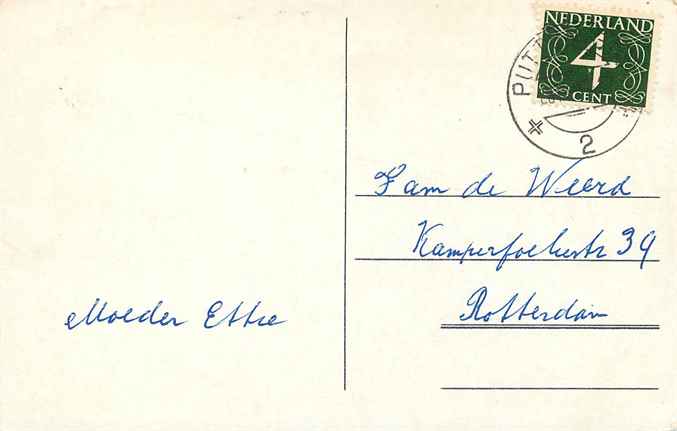 NEDERLAND
4
CENT
PUTT
2
Fam de Weerd
Kamperfoeliestr 39
Rotterdam
Moeder Ettie